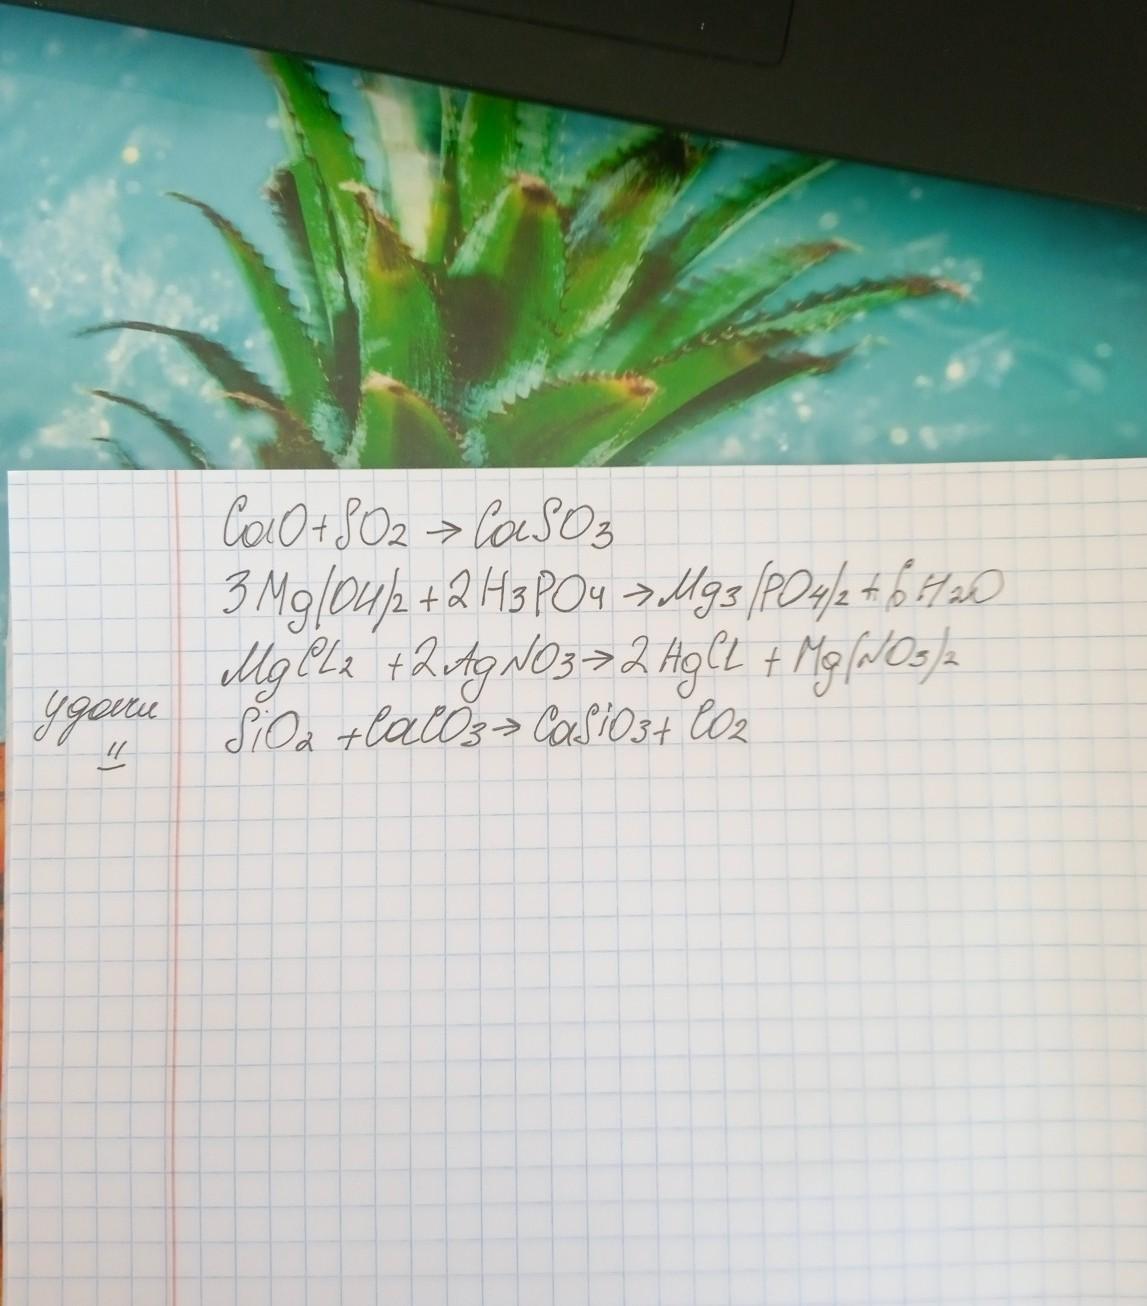 CaO+SO2 → CaSO3
3Mg(OH)2 + 2H3PO4 → Mg3(PO4)2 + 6H2O
MgCl2 + 2AgNO3 → 2HgCl + Mg(NO3)2
удачи SiO2 + CaCO3 → CaSiO3 + CO2